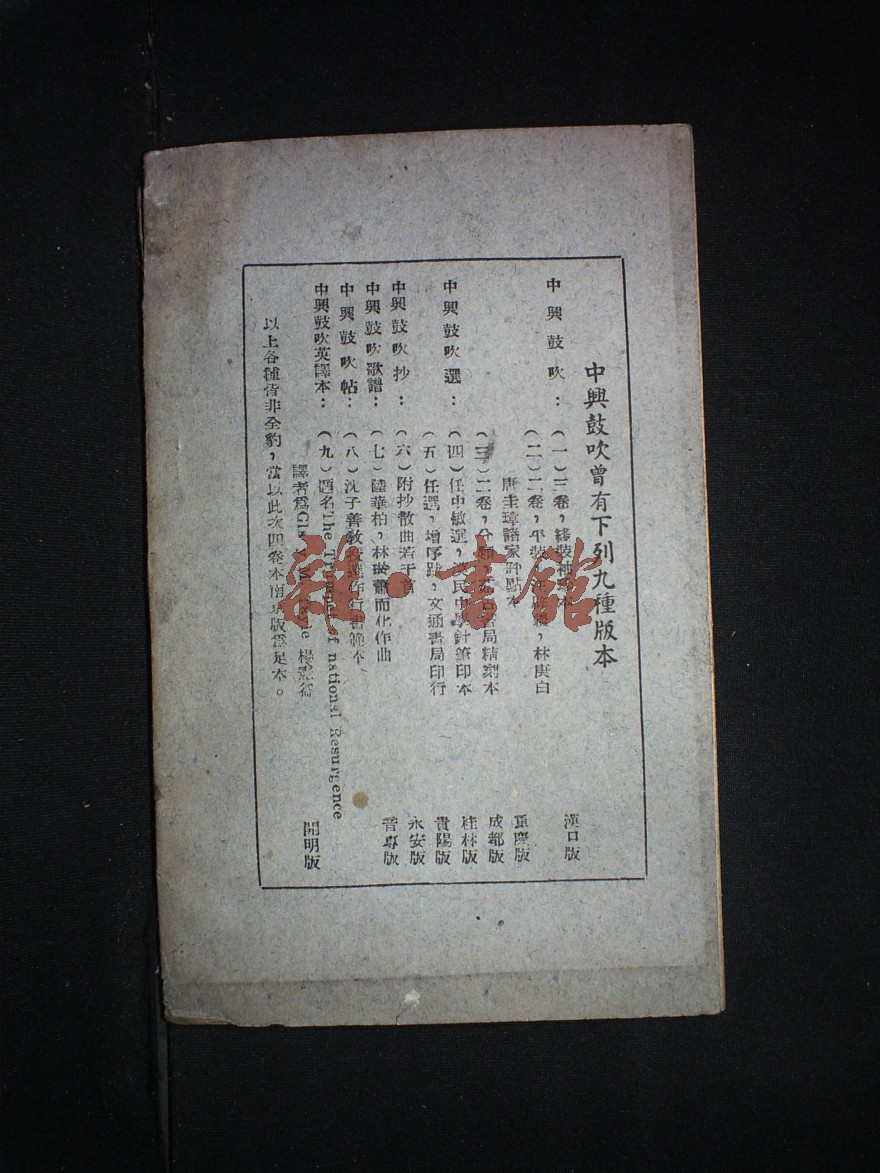 中興鼓吹曾有下列九種版本
中興鼓吹：（一）三卷，綫裝袖珍本 漢口版
（二）二卷，平裝， 林庚白
唐圭璋諸家評點本 重慶版
（三）二卷，分類， 書局精刻本 成都版
中興鼓吹選：（四）任中敏選，漢民中學針筆印本 桂林版
（五）任選，增序跋，文通書局印行 貴陽版
中興鼓吹抄：（六）附抄散曲若干首 永安版
中興鼓吹歌譜：（七）陸華柏，林 而化作曲 晉專版
中興鼓吹帖：（八）沈子善教授 作行書範本
中興鼓吹英譯本：（九）題名The Trumpet of national Resurgence
譯者為 楊憲 開明版
以上各種皆非全豹，當以此次四卷本南京版為足本。
雜·書館